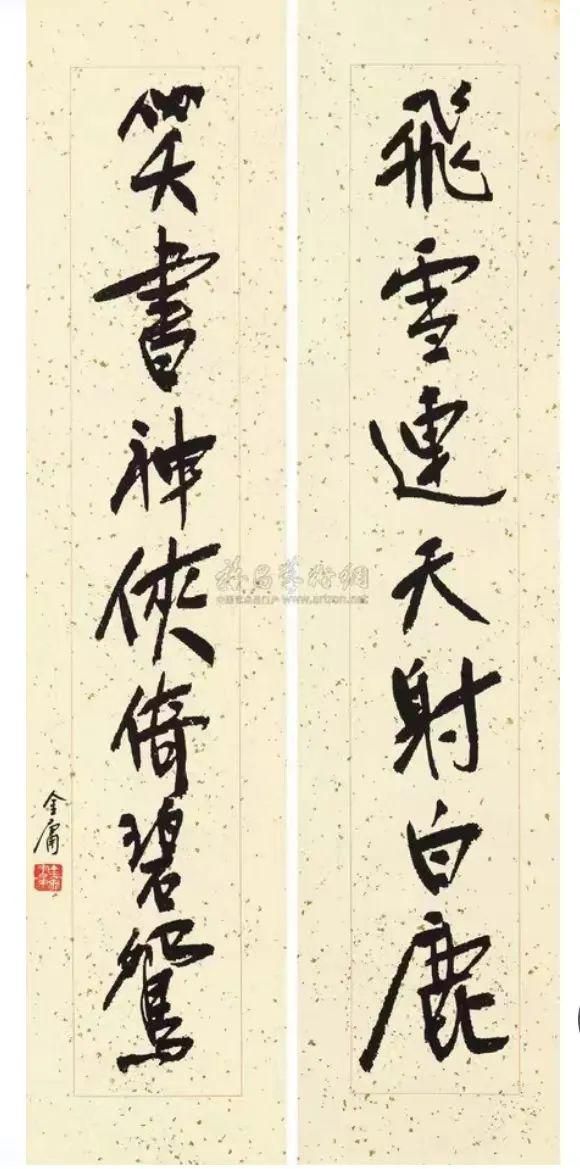 飛雪連天射白鹿
笑書神俠倚碧鴛
金庸
雅昌藝術網
www.artron.net